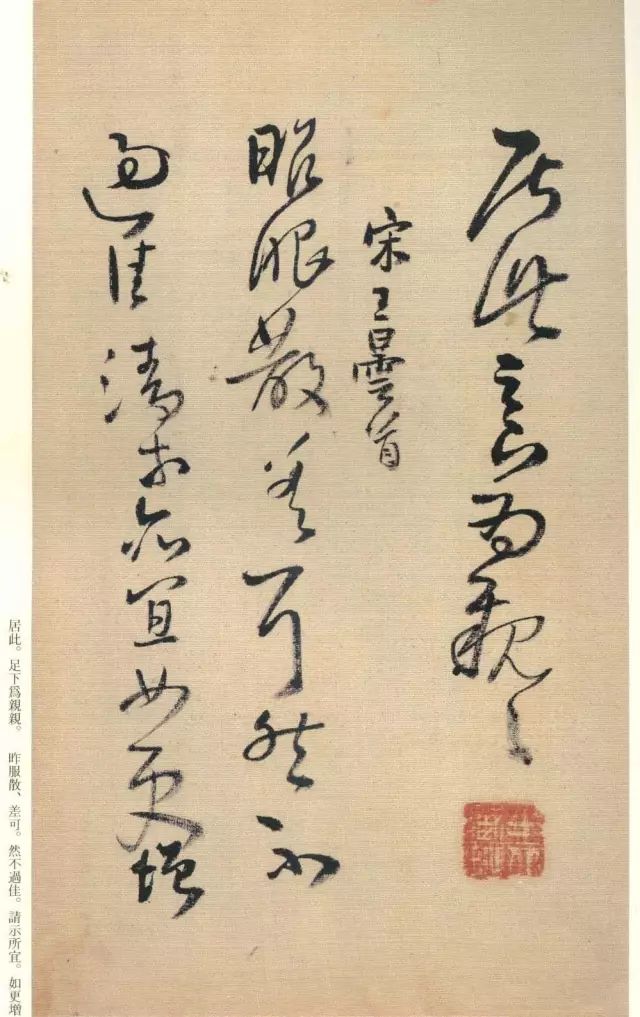 居此足下爲親〻
宋王曇首
昨服散差可然不
過佳請示所宜如更增
居此。足下爲親親。　昨服散、差可。然不過佳。請示所宜。如更增